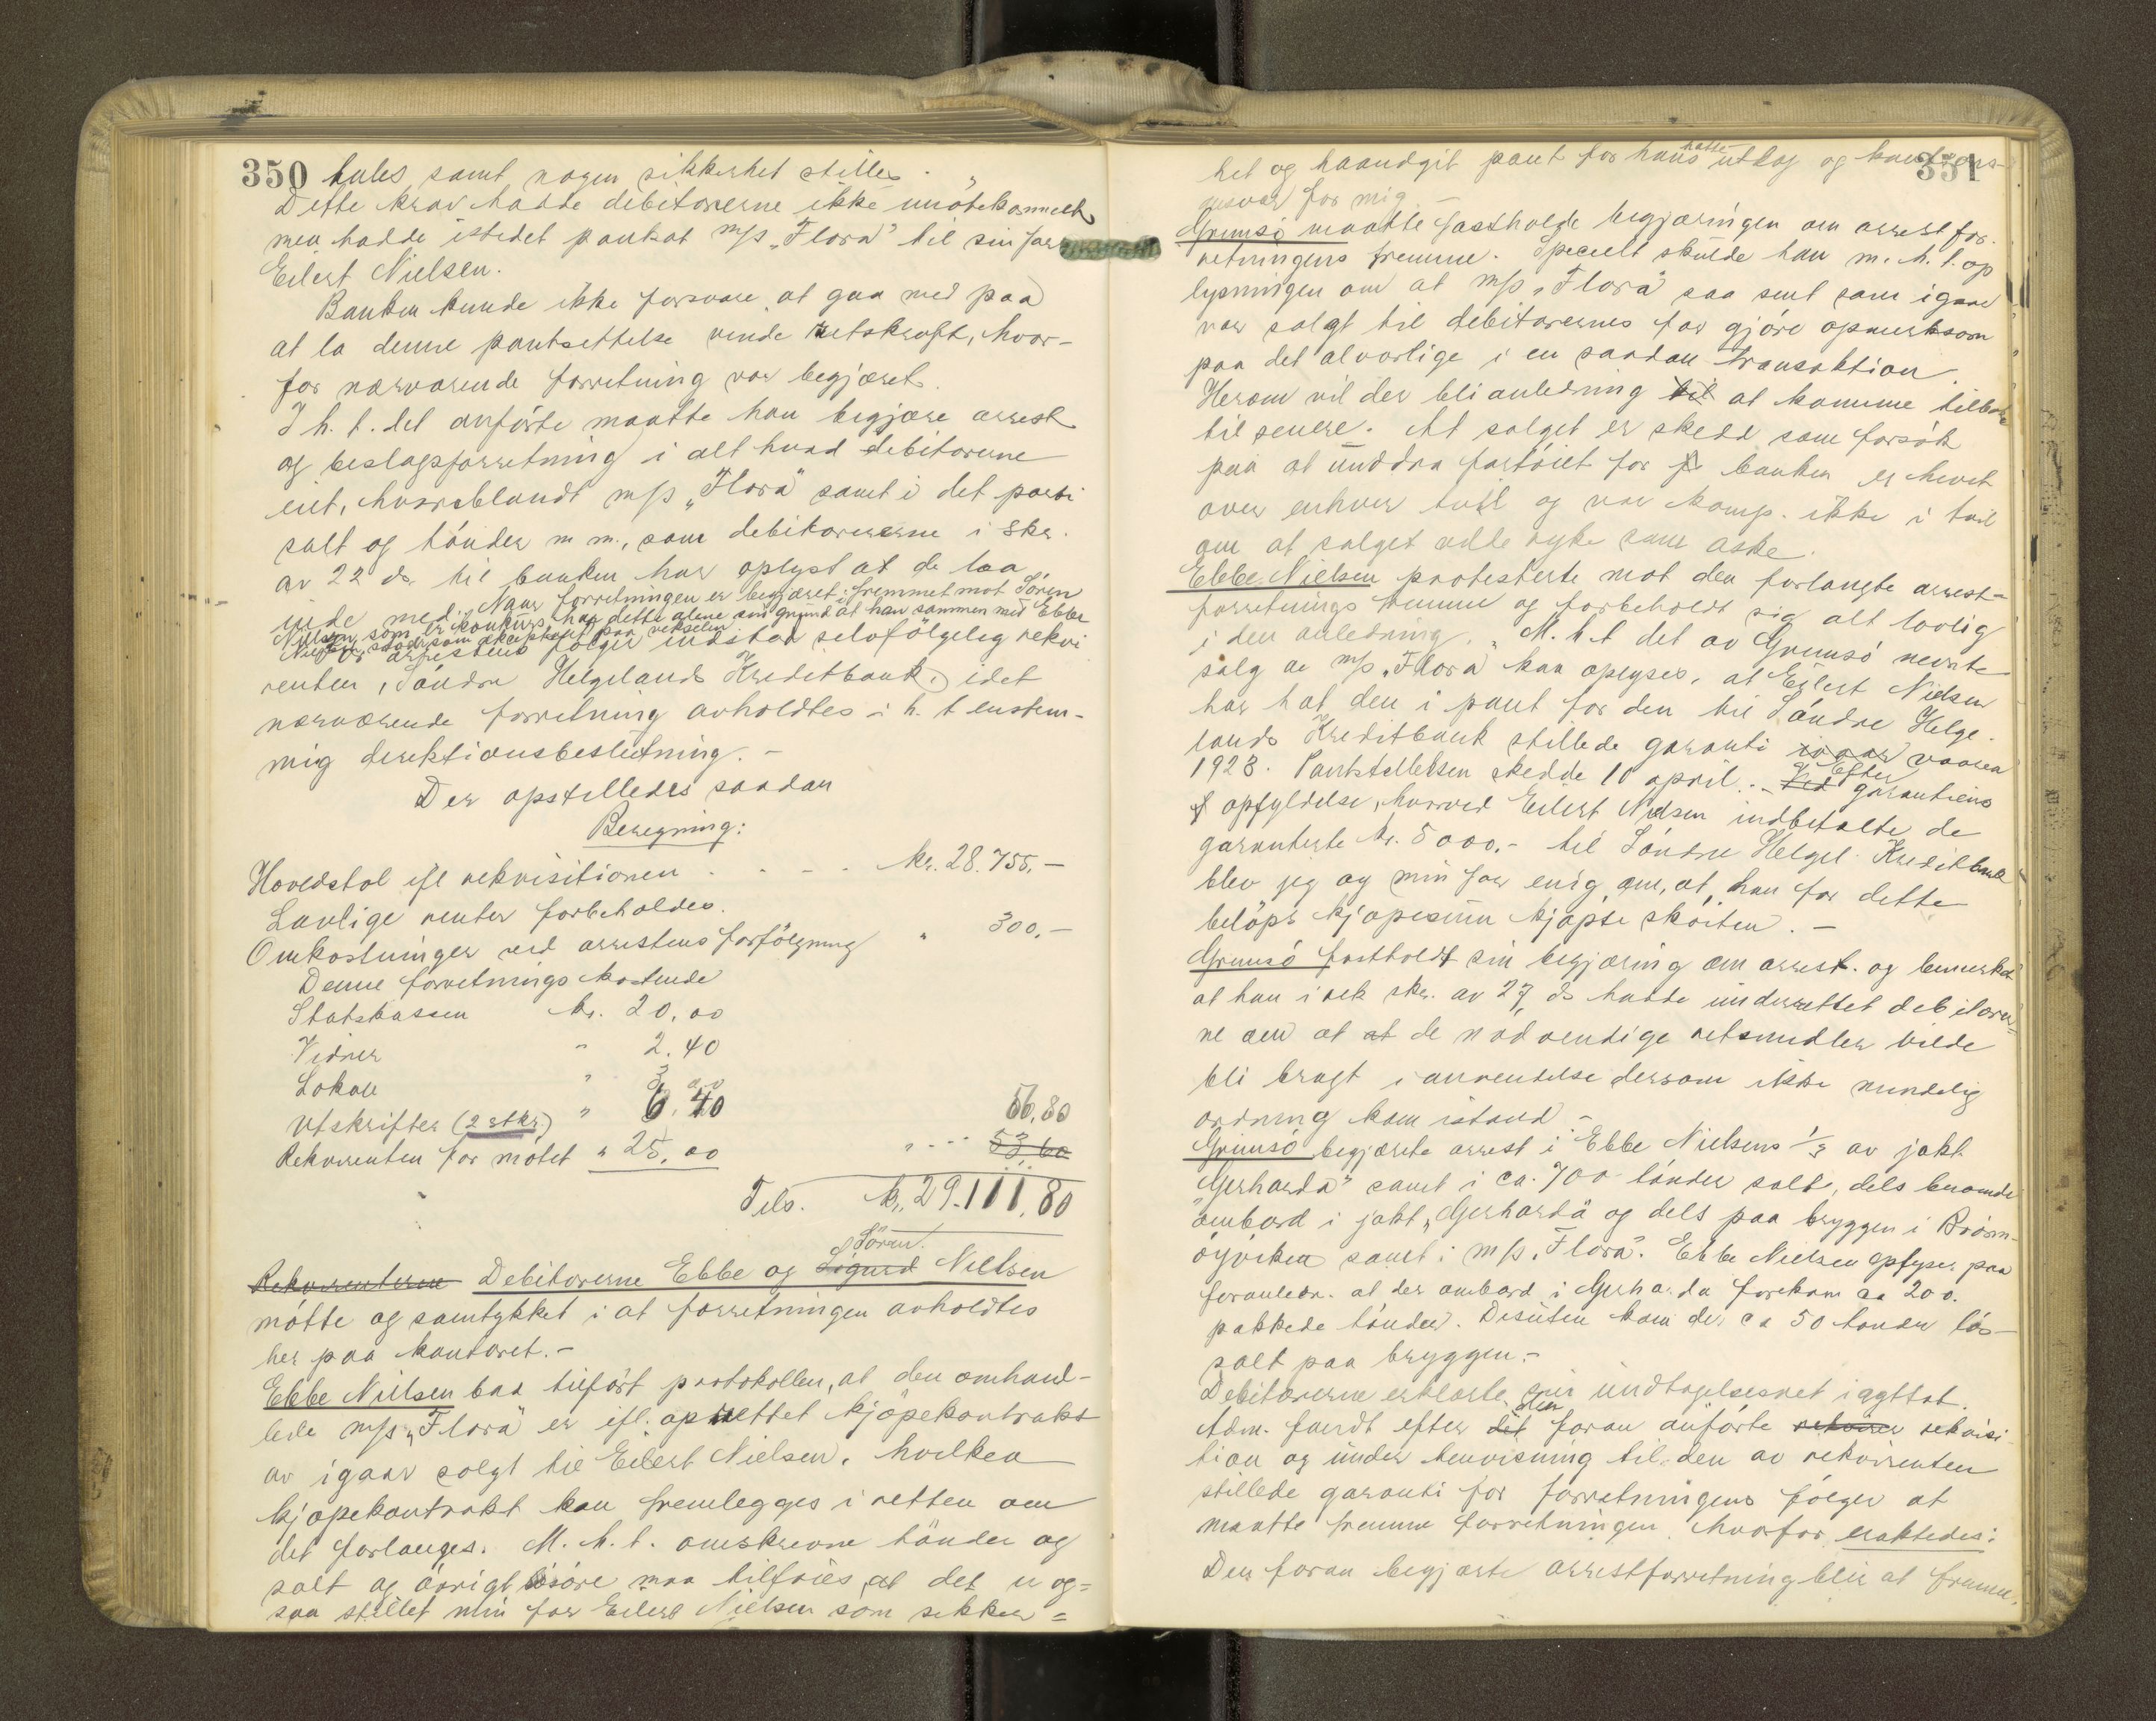 350
tales samt nogen sikkerhet stilles. "
Dette krav hadde debitorerne ikke imøtekommet
men hadde istedet pantsat m/s "Flora" til sin far
Eilert Nielsen.
Banken kunde ikke forsvare at gaa med paa
at la denne pantsettelse vinde retskraft, hvor-
for nærværende forretning var begjæret.
I h. t. det anførte maatte han begjære arrest
og beslagsforretning i alt hvad debitorerne
eiet, hvoriblandt m/s "Flora" samt i det parti
salt og tønder m m., som debitorererne i skr.
av 22 ds. til banken har oplyst at de laa
inde med. Naar forretningen er begjæret fremmet mot Søren
Nielsen som er konkurs, har dette alene sin grund at han sammen med Ebbe
Nielsen staar som akceptant paa vekselen
For arrestens følger indstaar selvfølgelig rekvi
renten, Søndre Helgelands Kreditbank, idet
nærværende forretning avholdtes i h. t enstem-
mig direktionsbeslutning. -
Der opstilledes saadan
Beregning:
Hovedstol ifl rekvisitionen . . - . kr. 28.755,-
Lovlige renter forbeholdes.
Omkostninger ved arrestens forfølgning " 300.-
Denne forretnings kostende
Statskassen kr. 20,00
Vidner " 2.40
Lokale " 3,00
Utskrifter (2 stkr.) " 6.40 56,80
Rekvirenten for møtet " 25,00 " 53,60
Tils. kr. 29.111,80
Søren
Rekvirenterne Debitorerne Ebbe og Sigurd Nielsen
møtte og samtykket i at forretningen avholdtes
her paa kontoret. -
Ebbe Nielsen bad tilført protokollen, at den omhand-
lede m/s "Flora" er ifl. oprettet kjøpekontrakt
av igaar solgt til Eilert Nielsen, hvilken
kjøpekontrakt kan fremlegges i retten om
det forlanges. M. h. t. omskrevne tønder og
salt og øvrigt løsøre maa tilføies, at det er og=
saa stillet min far Eilert Nielsen som sikker=
351
het og haandgit pant for hans hatte utlag og
ansvar for mig. -
Grimsø maatte fastholde begjæringen om arrestfor-
retningens fremme. Specielt skulde han m. h. t. op
lysningen om at m/s "Flora" saa sent som igaar
var solgt til debitorernes far gjøre opmerksom
paa det alvorlige i en saadan transaktion.
Herom vil der bli anledning til at komme tilbake
til senere. At salget er skedd som forsøk
paa at unddra fartøiet for banken er hevet
over enhver tvil og var komp. ikke i tvil
om at salget vilde ryke som aske.
Ebbe Nielsen protesterte mot den forlangte arrest-
forretnings fremme og forbeholdt sig alt lovlig
i den anledning. "M. h. t det av Grimsø nevnte
salg av m/s "Flora" kan oplyses, at Eilert Nielsen
har hat den i pant for den til Søndre Helge-
lands Kreditbank stillede garanti ivaar vaaren
1928. Pantstillelsen skedde 10 april. - Ved Efter garantiens
opfyldelse, hvorved Eilert Nielsen indbetalte de
garanterte kr. 5000.- til Søndre Helgel. Kreditbank
blev jeg og min far enig om, at han for dette
beløps kjøpesum kjøpte skøiten. -
Grimsø fastholdt sin begjæring om arrest. og bemerket
at han i rek skr. av 27 ds hatte underrettet debitorer=
ne om at at de nødvendige retsmidler vilde
bli bragt i anvendelse dersom ikke mindelig
ordning kom istand -
Grimsø begjærte arrest i Ebbe Nielsens 1/3 av jakt
"Gerharda" samt i ca. 700 tønder salt, dels beroende
ombord i jakt "Gerharda" og dels paa bryggen i Brøn-
øyviken samt i m/s "Flora". Ebbe Nielsen oplyser paa
foranledn. at der ombord i Gerharda forekom ca 200.
pakkede tønder. Desuten kom der ca 50 tønder løs-
salt paa bryggen. -
Debitorerne erklærte sin undtagelsesret iagttat.
Adm. fandt efter det den foran anførte rekvirer rekvisi-
tion og under henvisning til den av rekvirenten
stillede garanti for forretningens følger at
maatte fremme forretningen, hvorfor eraktedes:
Den foran begjærte arrestforretning blir at fremme.